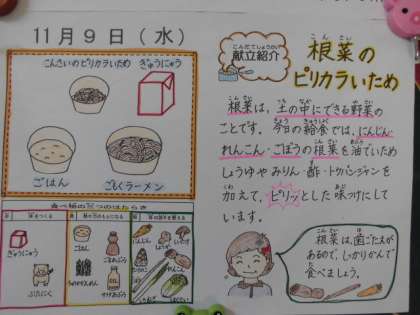 11月9日（水）
こんさいのピリカラいため
ぎゅうにゅう
ごはん
ごもくラーメン
食べ物の三つのはたらき
ぎゅうにゅう
ぶたにく
ごはん
ごまあぶら
にんじん
こんだてしょうかい
献立紹介
こんさい
根菜の
ピリカラいため
根菜は、土の中にできる野菜の
ことです。今日の給食では、にんじん・
れんこん・ごぼうの根菜を油でいため
しょうゆやみりん・酢・トウバンジャンを
加えて、ピリッとした味つけにして
います。
根菜は、歯ごたえが
あるので、しっかりかんで
食べましょう。